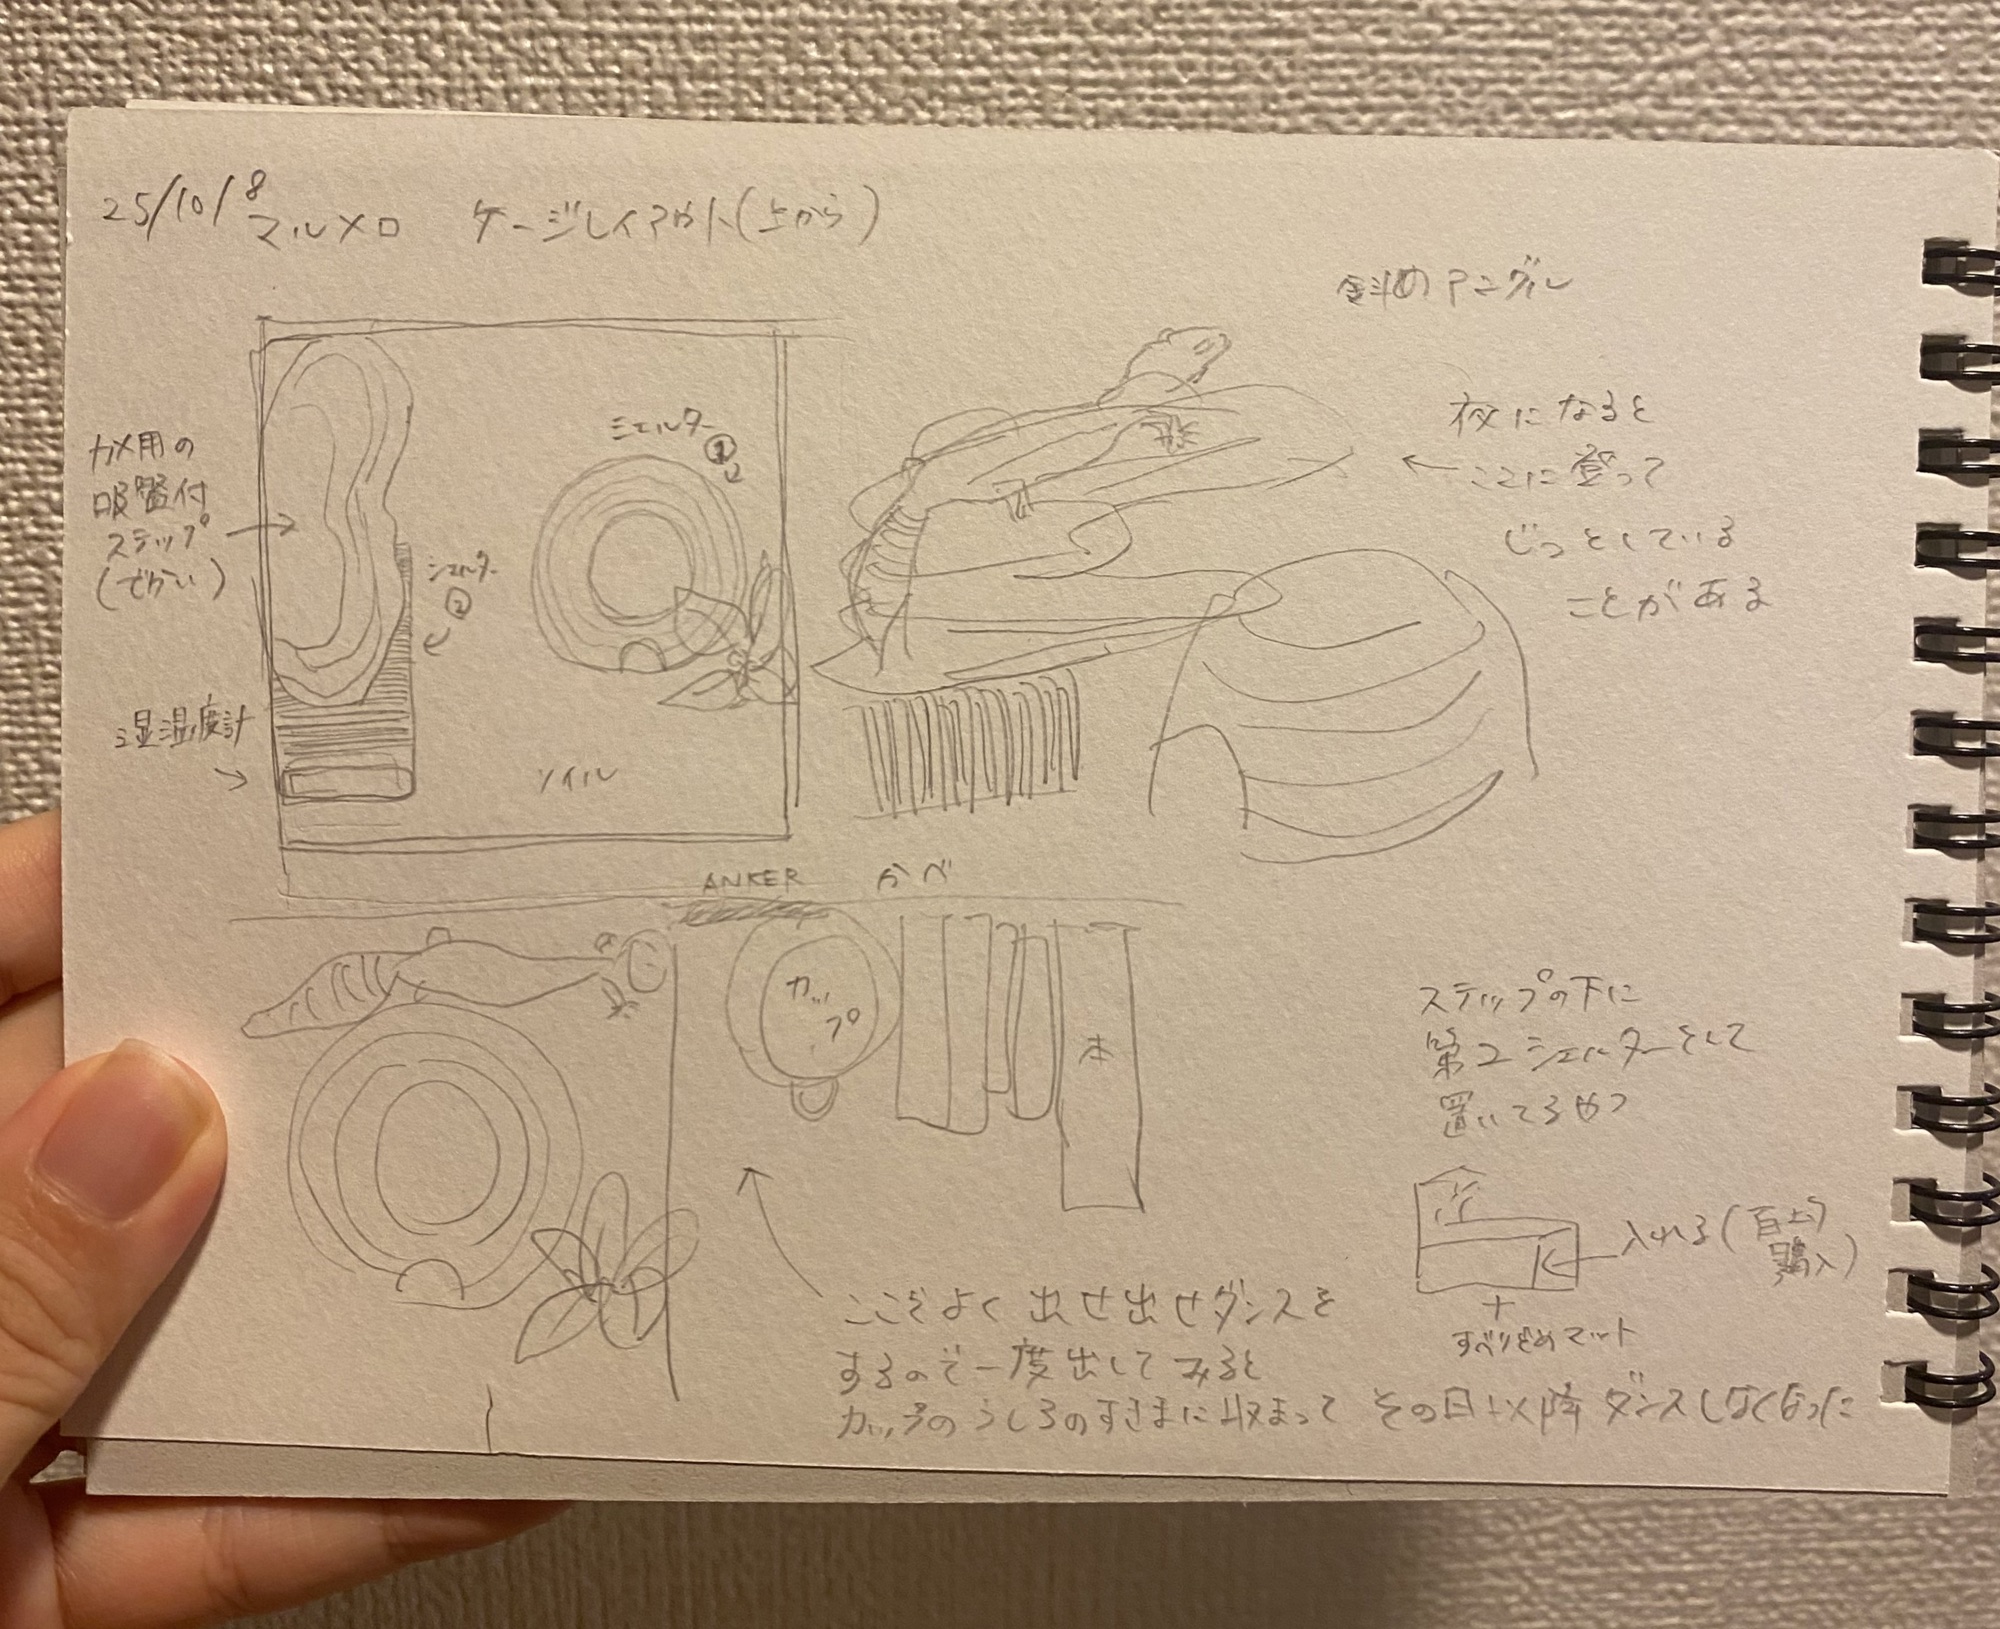 25/10/8
マルメロ ケージレイアウト(上から)
斜めアングル
カメ用の
吸盤付
ステップ
(でかい)
シェルター
①
シェルター
②
湿温度計
ソイル
夜になると
ここに登って
じっとしている
ことがある
ANKER かべ
カップ
本
ステップの下に
第2シェルターとして
置いてるやつ
入れる(百均
購入)
+
すべりどめマット
ここでよく出せ出せダンスを
するので一度出してみると
カップのうしろのすきまに収まって その日以降ダンスしなくなった